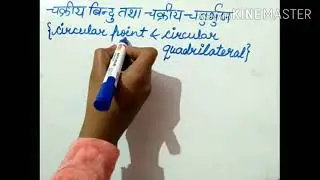 चक्रीय बिन्दु तथा चक्रीय चतुर्भुज
{circular point & circular
quadrilateral}
KINEMASTER